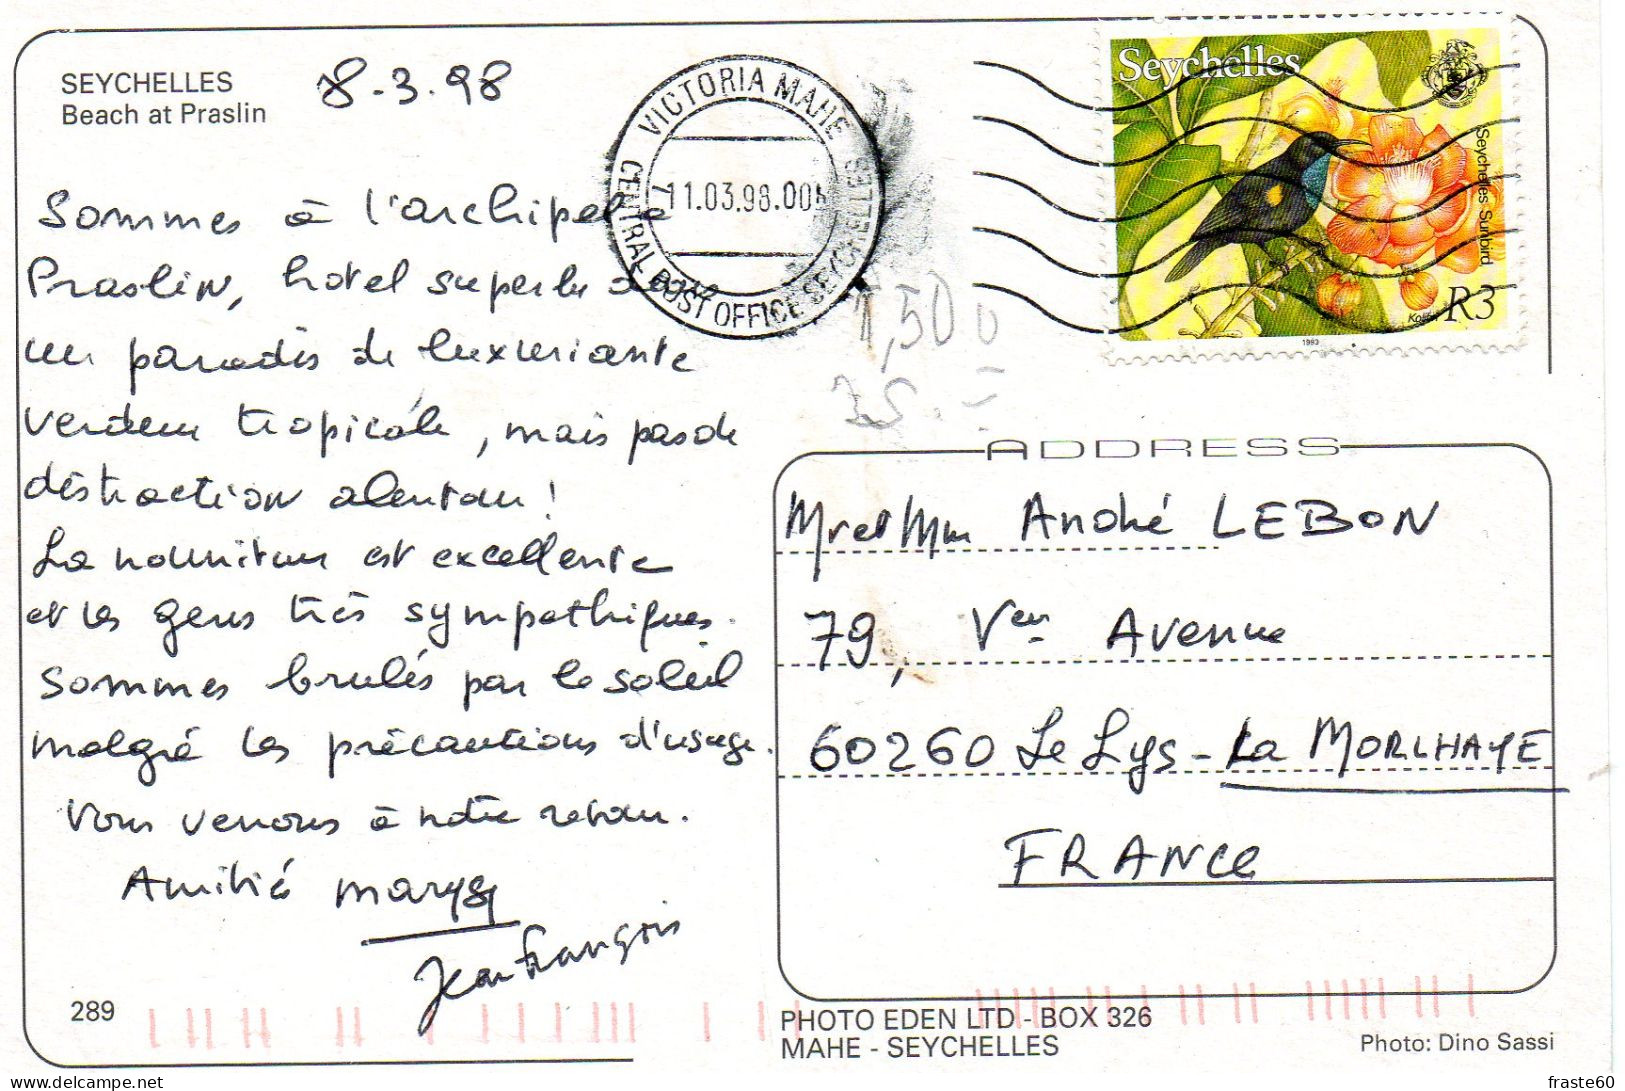 SEYCHELLES
Beach at Praslin
8-3.98
Sommes à l'archipel à
Praslin, hotel superbe dans
un paradis de luxuriante
verdure tropicale, mais pas de
distraction alentour!
La nourriture est excellente
et les gens très sympathiques.
Sommes brulés par le soleil
malgré les précautions d'usage.
Vous venons à notre retour.
Amitié Marysy
Jean François
289
VICTORIA MAHE
11.03.98.00
CENTRAL POST OFFICE SEYCHELLES
1,50
Seychelles
Seychelles Sunbird
R3
1993
ADDRESS
Mr et Mm André LEBON
79, Vem Avenue
60260 Le Lys - La MORLHAYE
FRANCe
PHOTO EDEN LTD - BOX 326
MAHE - SEYCHELLES
Photo: Dino Sassi
fraste60